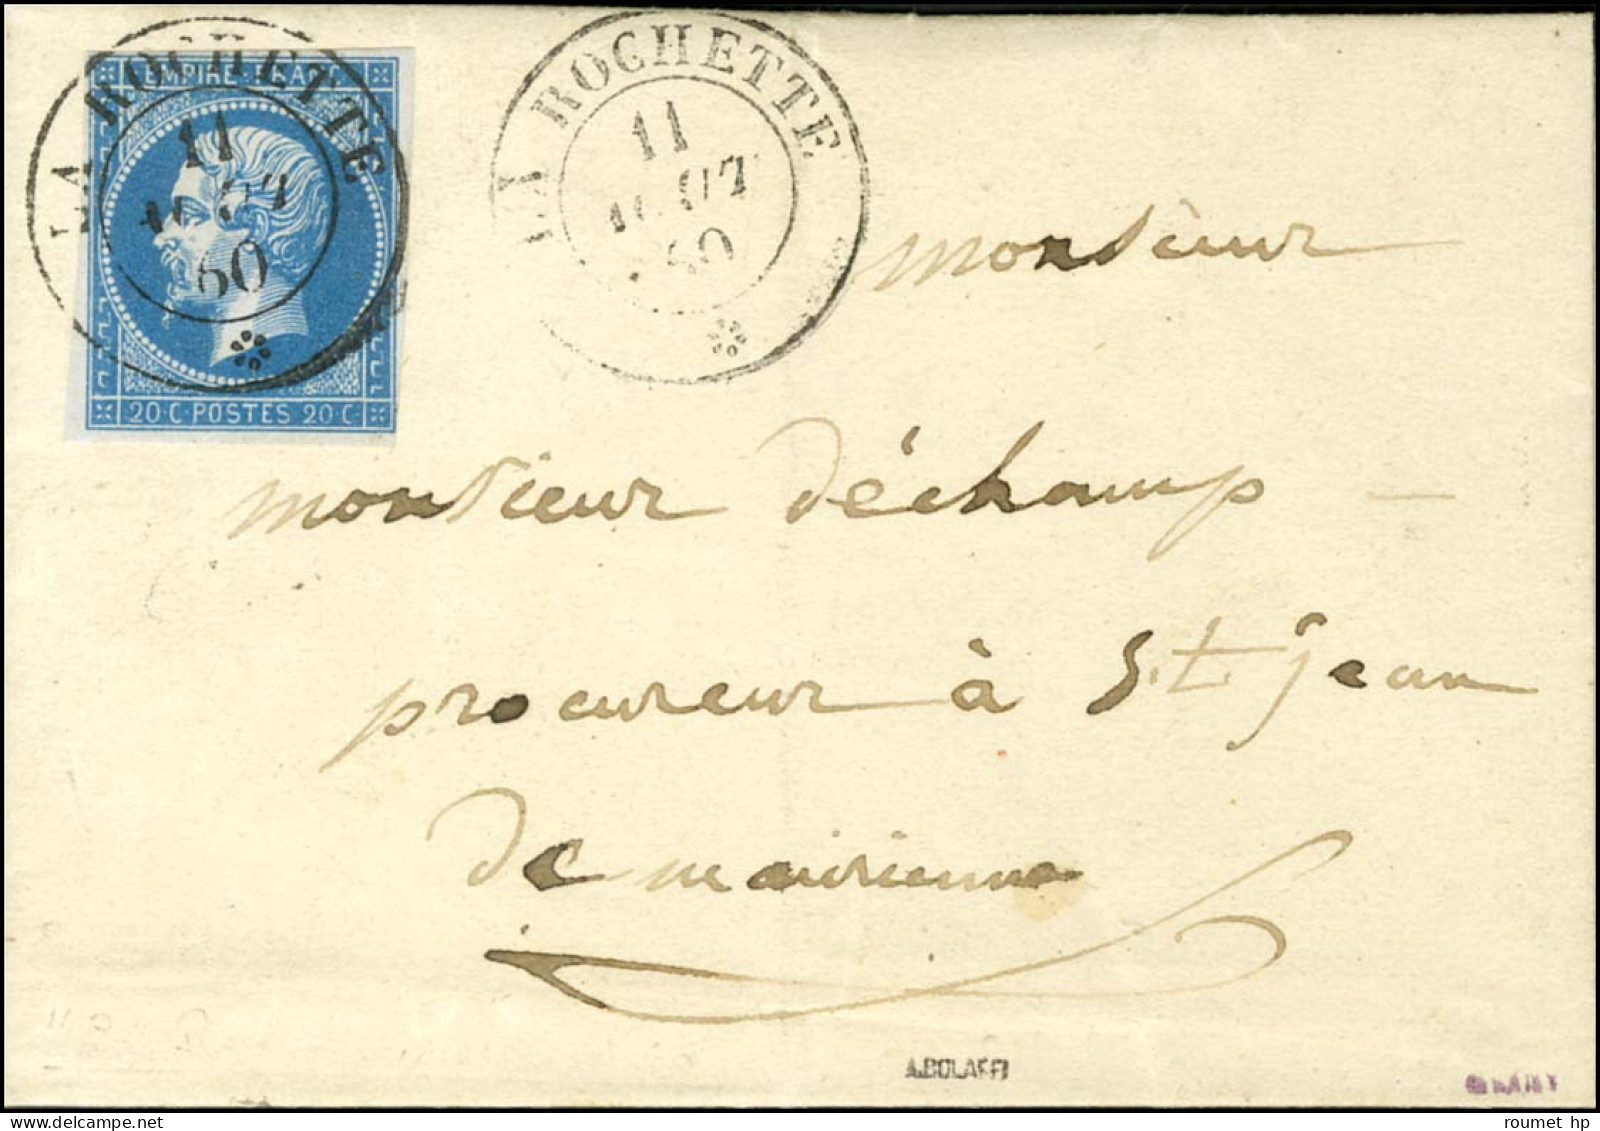 EMPIRE FRANC
LA ROCHETTE
11
AOUT
60
20 C POSTES 20 C
LA ROCHETTE
11
AOUT
60
monsieur
monsieur déchamp
procureur à St jean
de mairienne
A.BOLAFFI
roumet hp